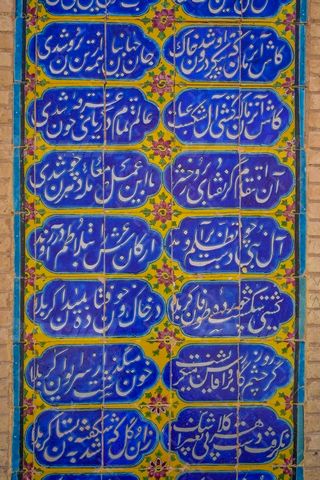 کاش آن زمان که پیکر او شد درون خاک
جان جهانیان همه از تن برون شدی
کاش آن زمان که کشتی آل عبا شکست
عالم تمام غرقه دریای خون شدی
آن انتقام گر نفتادی بروز حشر
با این عمل معامله دهر چون شدی
آل نبی چو دست تظلم برآورند
ارکان عرش را بتلاطم درآورند
کشتی شکست خورده طوفان کربلا
در خاک و خون فتاده بمیدان کربلا
گر چشم روزگار بر او فاش میگریست
خون میگذشت از سر ایوان کربلا
نگرفت دست دهر گلابی بغیر اشک
زان گل که شد شکفته ببستان کربلا